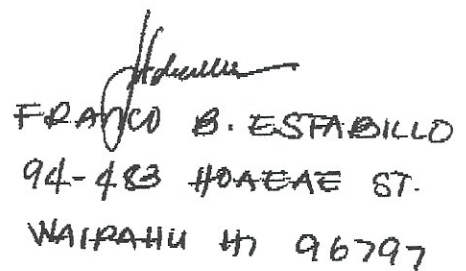 FRANCO B. ESTABILLO
94-483 HOAEAE ST.
WAIPAHU HI 96797